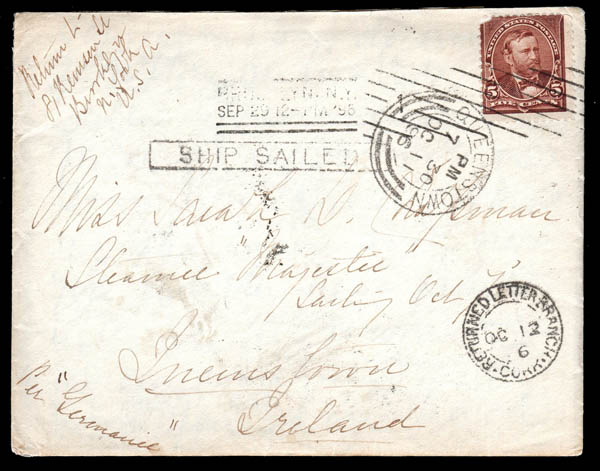 Return to
Remsen St
Brooklyn
U.S.A.
UNITED STATES POSTAGE
5 5
FIVE CENTS
BROOKLYN, N.Y.
SEP 29 12-PM '95
QUEENSTOWN
7 30 PM
OC 1
96
SHIP SAILED
Miss Sarah D.
Steamer "Majestic"
Sailing Oct
Queenstown
Ireland
Per "Germanic"
RETURNED LETTER BRANCH
OC 12
6
CORK